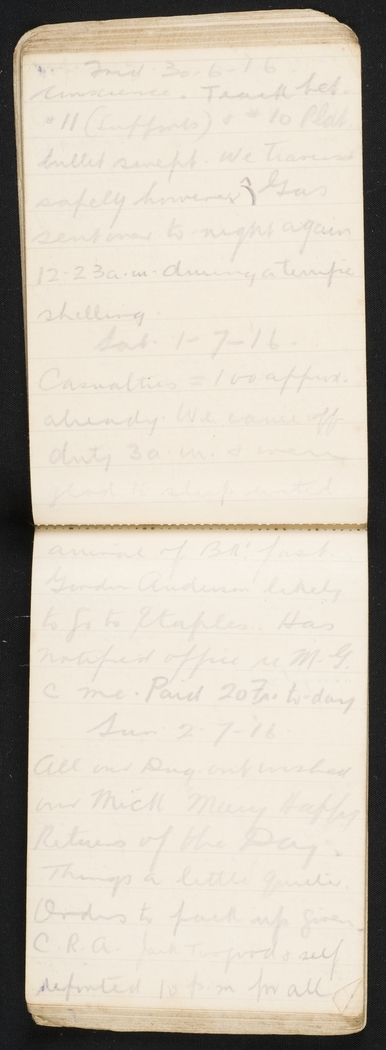 Frid. 30-6-16
Track bet.
# 11 (Supports) & # 10 Plat
bullet swept. We traversed
safely however. Gas
sent over to-night again
12-23 a.m. during a terrific
shelling.
Sat. 1-7-16.
Casualties = 100 approx.
already. We came off
duty 3 a.m. & were
glad to sleep until
arrival of Bk'fast.
Gordon Anderson likely
to go to Etaples. Has
notified office re M.G.
C me. Paid 20 Fr. to-day
Sun. 2-7-16.
All our Dug out wished
our Mick Many Happy
Returns of the Day.
Things a little quieter.
Orders to pack up given.
C.R.A. Jack & self
departed 10 p.m for all